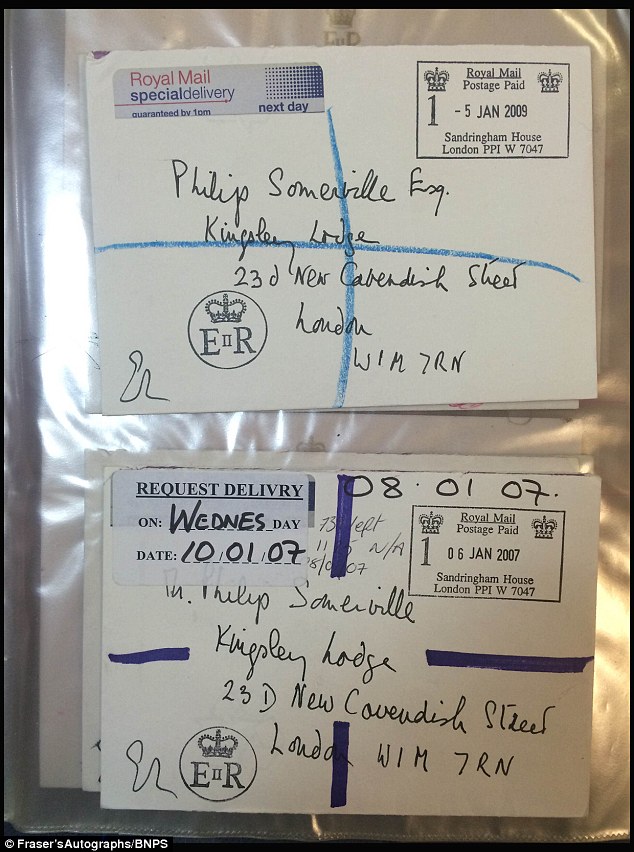 Royal Mail
specialdelivery
guaranteed by 1pm
next day
Royal Mail
Postage Paid
1 - 5 JAN 2009
Sandringham House
London PPI W 7047
Philip Somerville Esq.
Kingsley Lodge
23d New Cavendish Street
London
W1M 7RN
EIIR
REQUEST DELIVRY
ON: WEDNES DAY
DATE: 10/01/07
08.01 07.
N/A
Royal Mail
Postage Paid
1 06 JAN 2007
Sandringham House
London PPI W 7047
Philip Somerville
Kingsley Lodge
23 D New Cavendish Street
London W1M 7RN
EIIR
© Fraser'sAutographs/BNPS